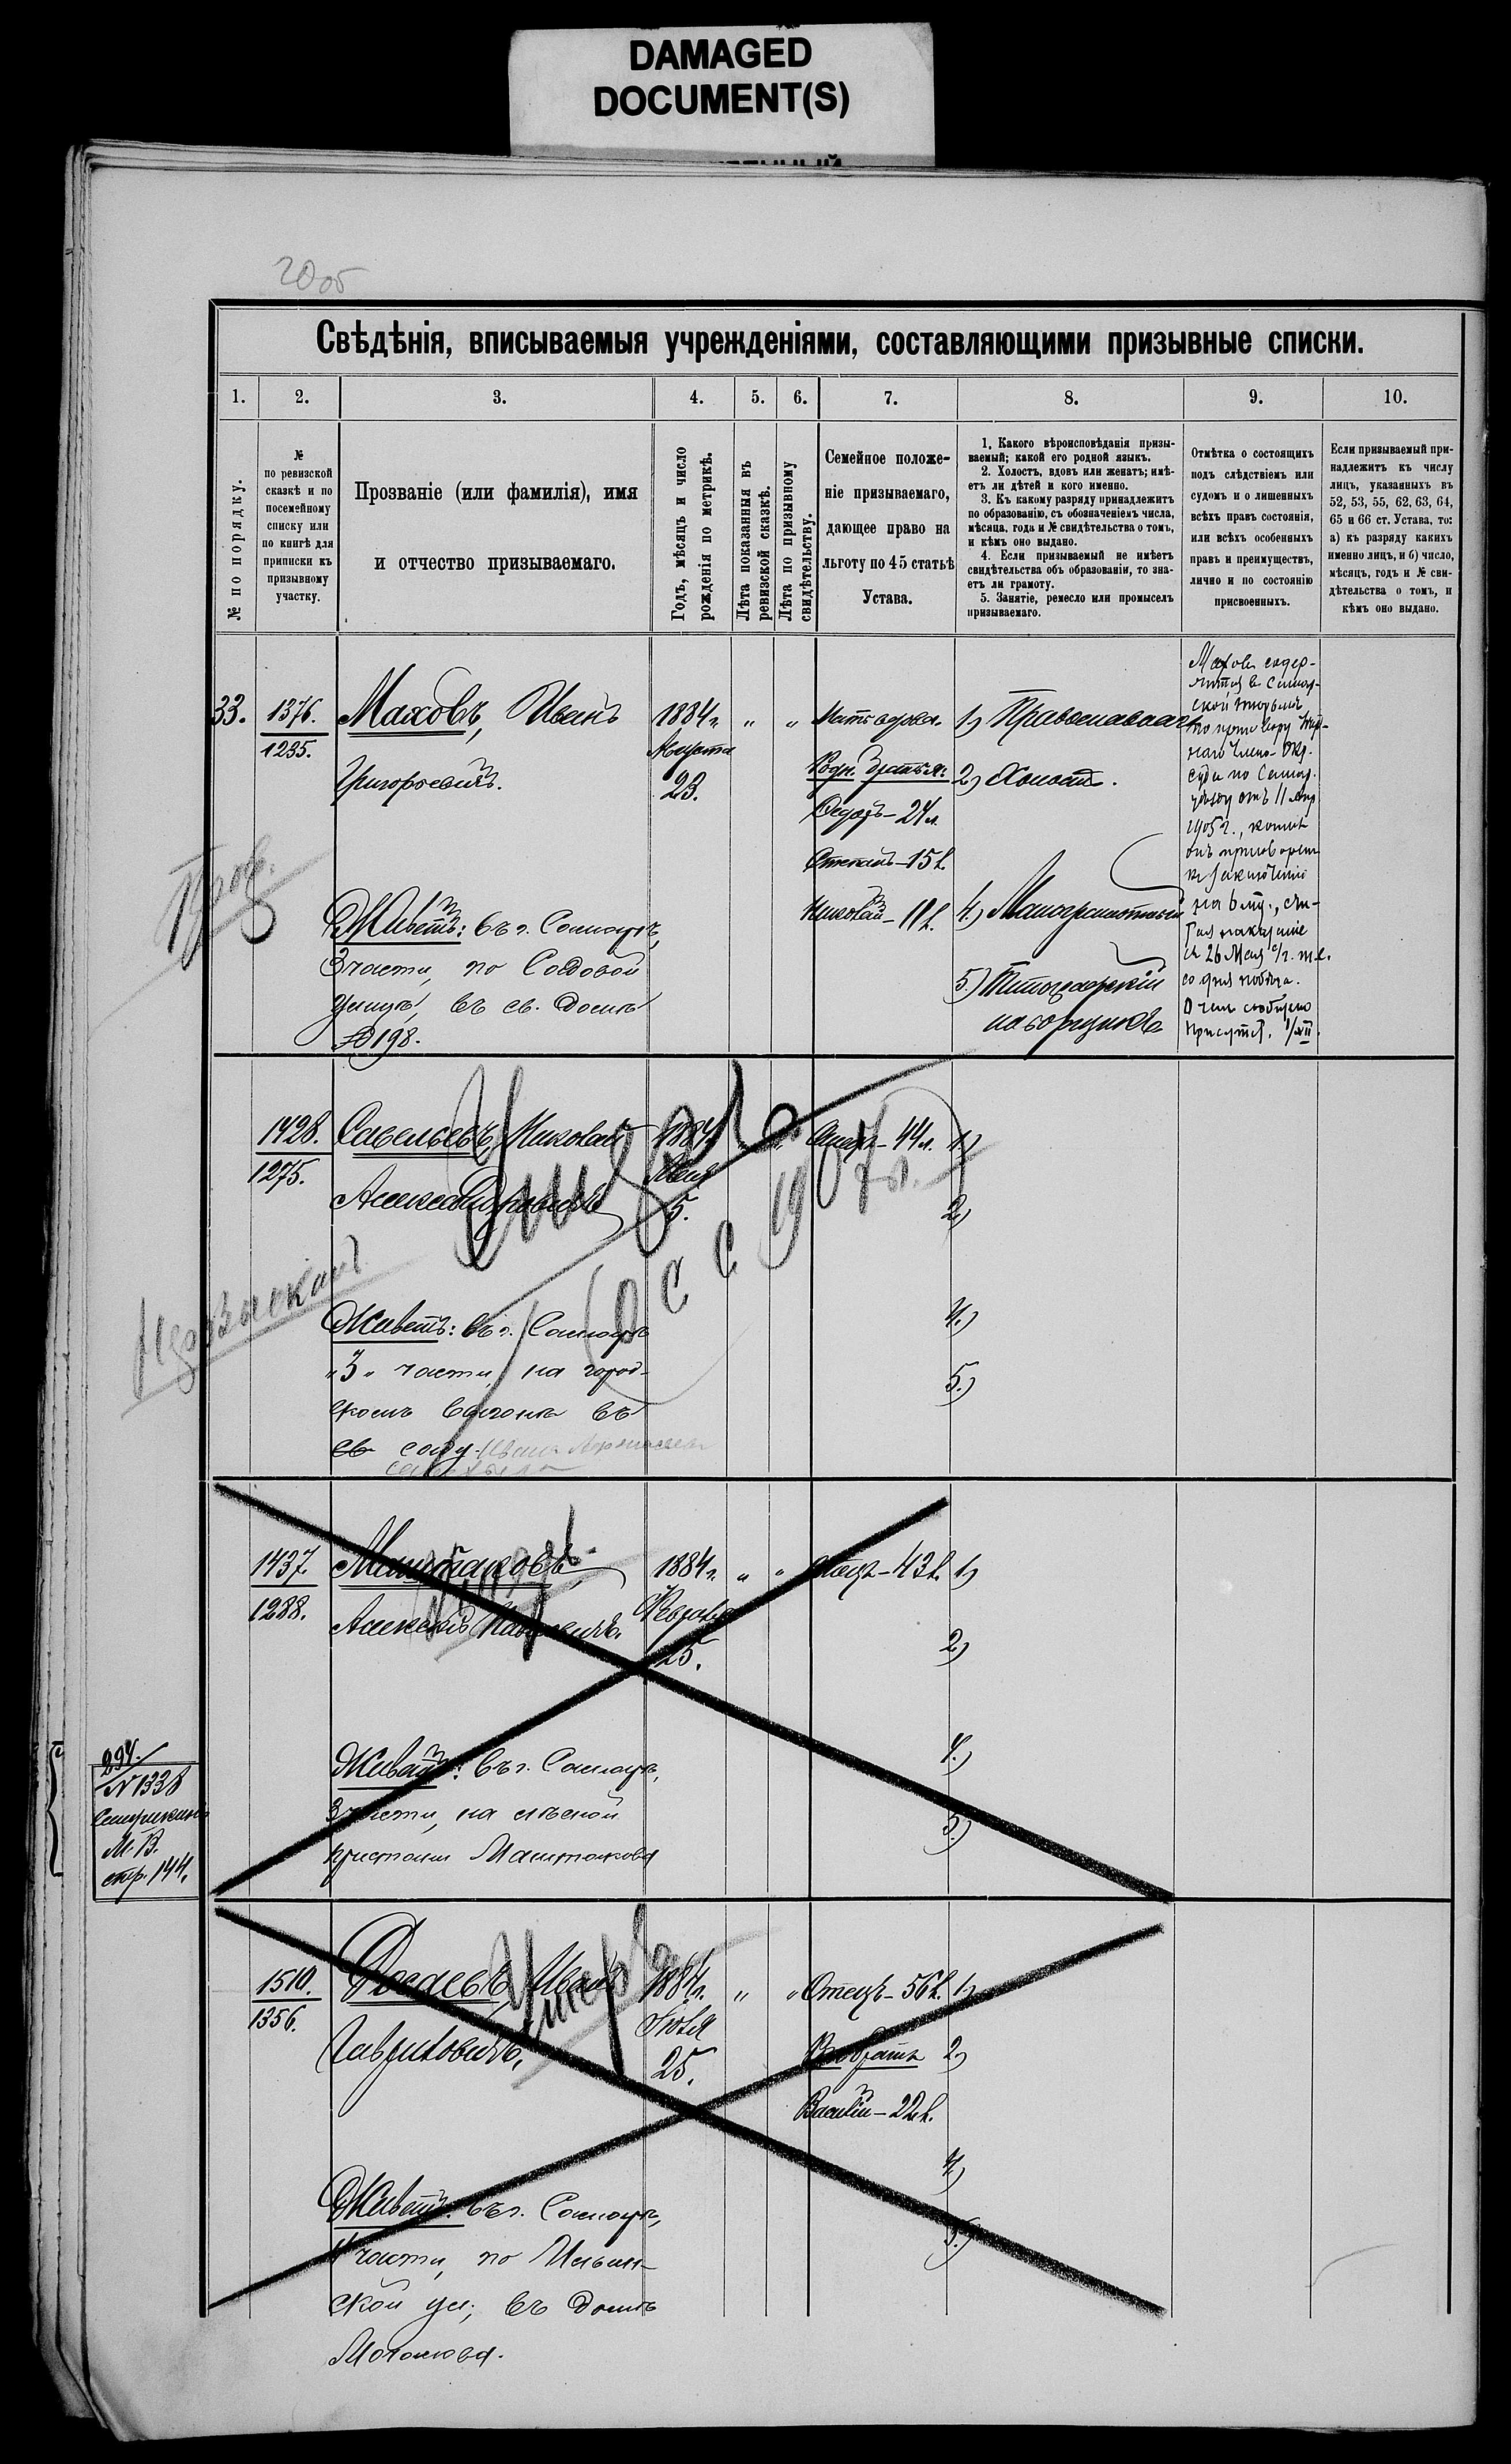 DAMAGED
DOCUMENT(S)
20 об
Свѣдѣнія, вписываемыя учрежденіями, составляющими призывные списки.
1. 2. 3. 4. 5. 6. 7. 8. 9. 10.
№ по порядку.
№
по ревизской
сказкѣ и по
посемейному
списку или
по книгѣ для
приписки къ
призывному
участку.
Прозваніе (или фамилія), имя
и отчество призываемаго.
Годъ, мѣсяцъ и число
рожденія по метрикѣ.
Лѣта показанныя въ
ревизской сказкѣ.
Лѣта по призывному
свидѣтельству.
Семейное положе-
ніе призываемаго,
дающее право на
льготу по 45 статьѣ
Устава.
1. Какого вѣроисповѣданія призы-
ваемый; какой его родной языкъ.
2. Холостъ, вдовъ или женатъ; имѣ-
етъ ли дѣтей и кого именно.
3. Къ какому разряду принадлежитъ
по образованію, съ обозначеніемъ числа,
мѣсяца, года и № свидѣтельства о томъ,
и кѣмъ оно выдано.
4. Если призываемый не имѣетъ
свидѣтельства объ образованіи, то зна-
етъ ли грамоту.
5. Занятіе, ремесло или промыселъ
призываемаго.
Отмѣтка о состоящихъ
подъ слѣдствіемъ или
судомъ и о лишенныхъ
всѣхъ правъ состоянія,
или всѣхъ особенныхъ
правъ и преимуществъ,
лично и по состоянію
присвоенныхъ.
Если призываемый при-
надлежитъ къ числу
лицъ, указанныхъ въ
52, 53, 55, 62, 63, 64,
65 и 66 ст. Устава, то:
а) къ разряду какихъ
именно лицъ, и б) число,
мѣсяцъ, годъ и № сви-
дѣтельства о томъ, и
кѣмъ оно выдано.
33.
1376.
1235.
Маховъ, Иванъ
Григорьевичъ.
Живетъ: въ г. Самарѣ,
3 части, по Садовой
улицѣ, въ св. домѣ
№ 198.
1884 г.
Августа
23.
" "
Мать вдова.
Родн. братья:
Ѳедоръ - 24 л.
Степанъ - 15 л.
Николай - 11 л.
1) Православная
2) Холостъ.
4) Малограмотный
5.) Типографскій
наборщикъ
Маховъ содер-
жится въ Самар-
ской тюрьмѣ
по приговору
суда по Самар.
уѣзду отъ 11 апр
1905 г., коимъ
онъ приговоренъ
къ заключенію
на 6 мѣс., счи-
тая наказаніе
съ 26 Мая с/г. т.е.
со дня побѣга.
О чемъ сообщено
Присутст.
1428.
1275.
Савельевъ, Николай
Александровичъ
Живетъ: въ г. Самарѣ
"3" части, на город-
скомъ выгонѣ въ
св саду Ивана
1884 г.
Мая
5.
Отецъ - 44 л.
1)
2)
4.)
5.)
Не розысканъ
1437.
1288.
Маштаковъ,
Алексѣй Павловичъ.
Умеръ.
Живетъ: въ г. Самарѣ,
3 части, на лѣсной
пристани Маштакова
1884 г.
Февраля
25.
" "
Отецъ - 43 л.
1)
2)
4.)
5.)
294.
№ 1338
М. В.
стр. 144.
1510.
1356.
Иванъ
Гавриловичъ,
Умеръ
Живетъ: въ г. Самарѣ,
4 части, по Ильин-
ской ул., въ домѣ
1884 г.
Іюля
25.
" "
Отецъ - 56 л.
Василій - 22 л.
1)
2)
4.)
5.)